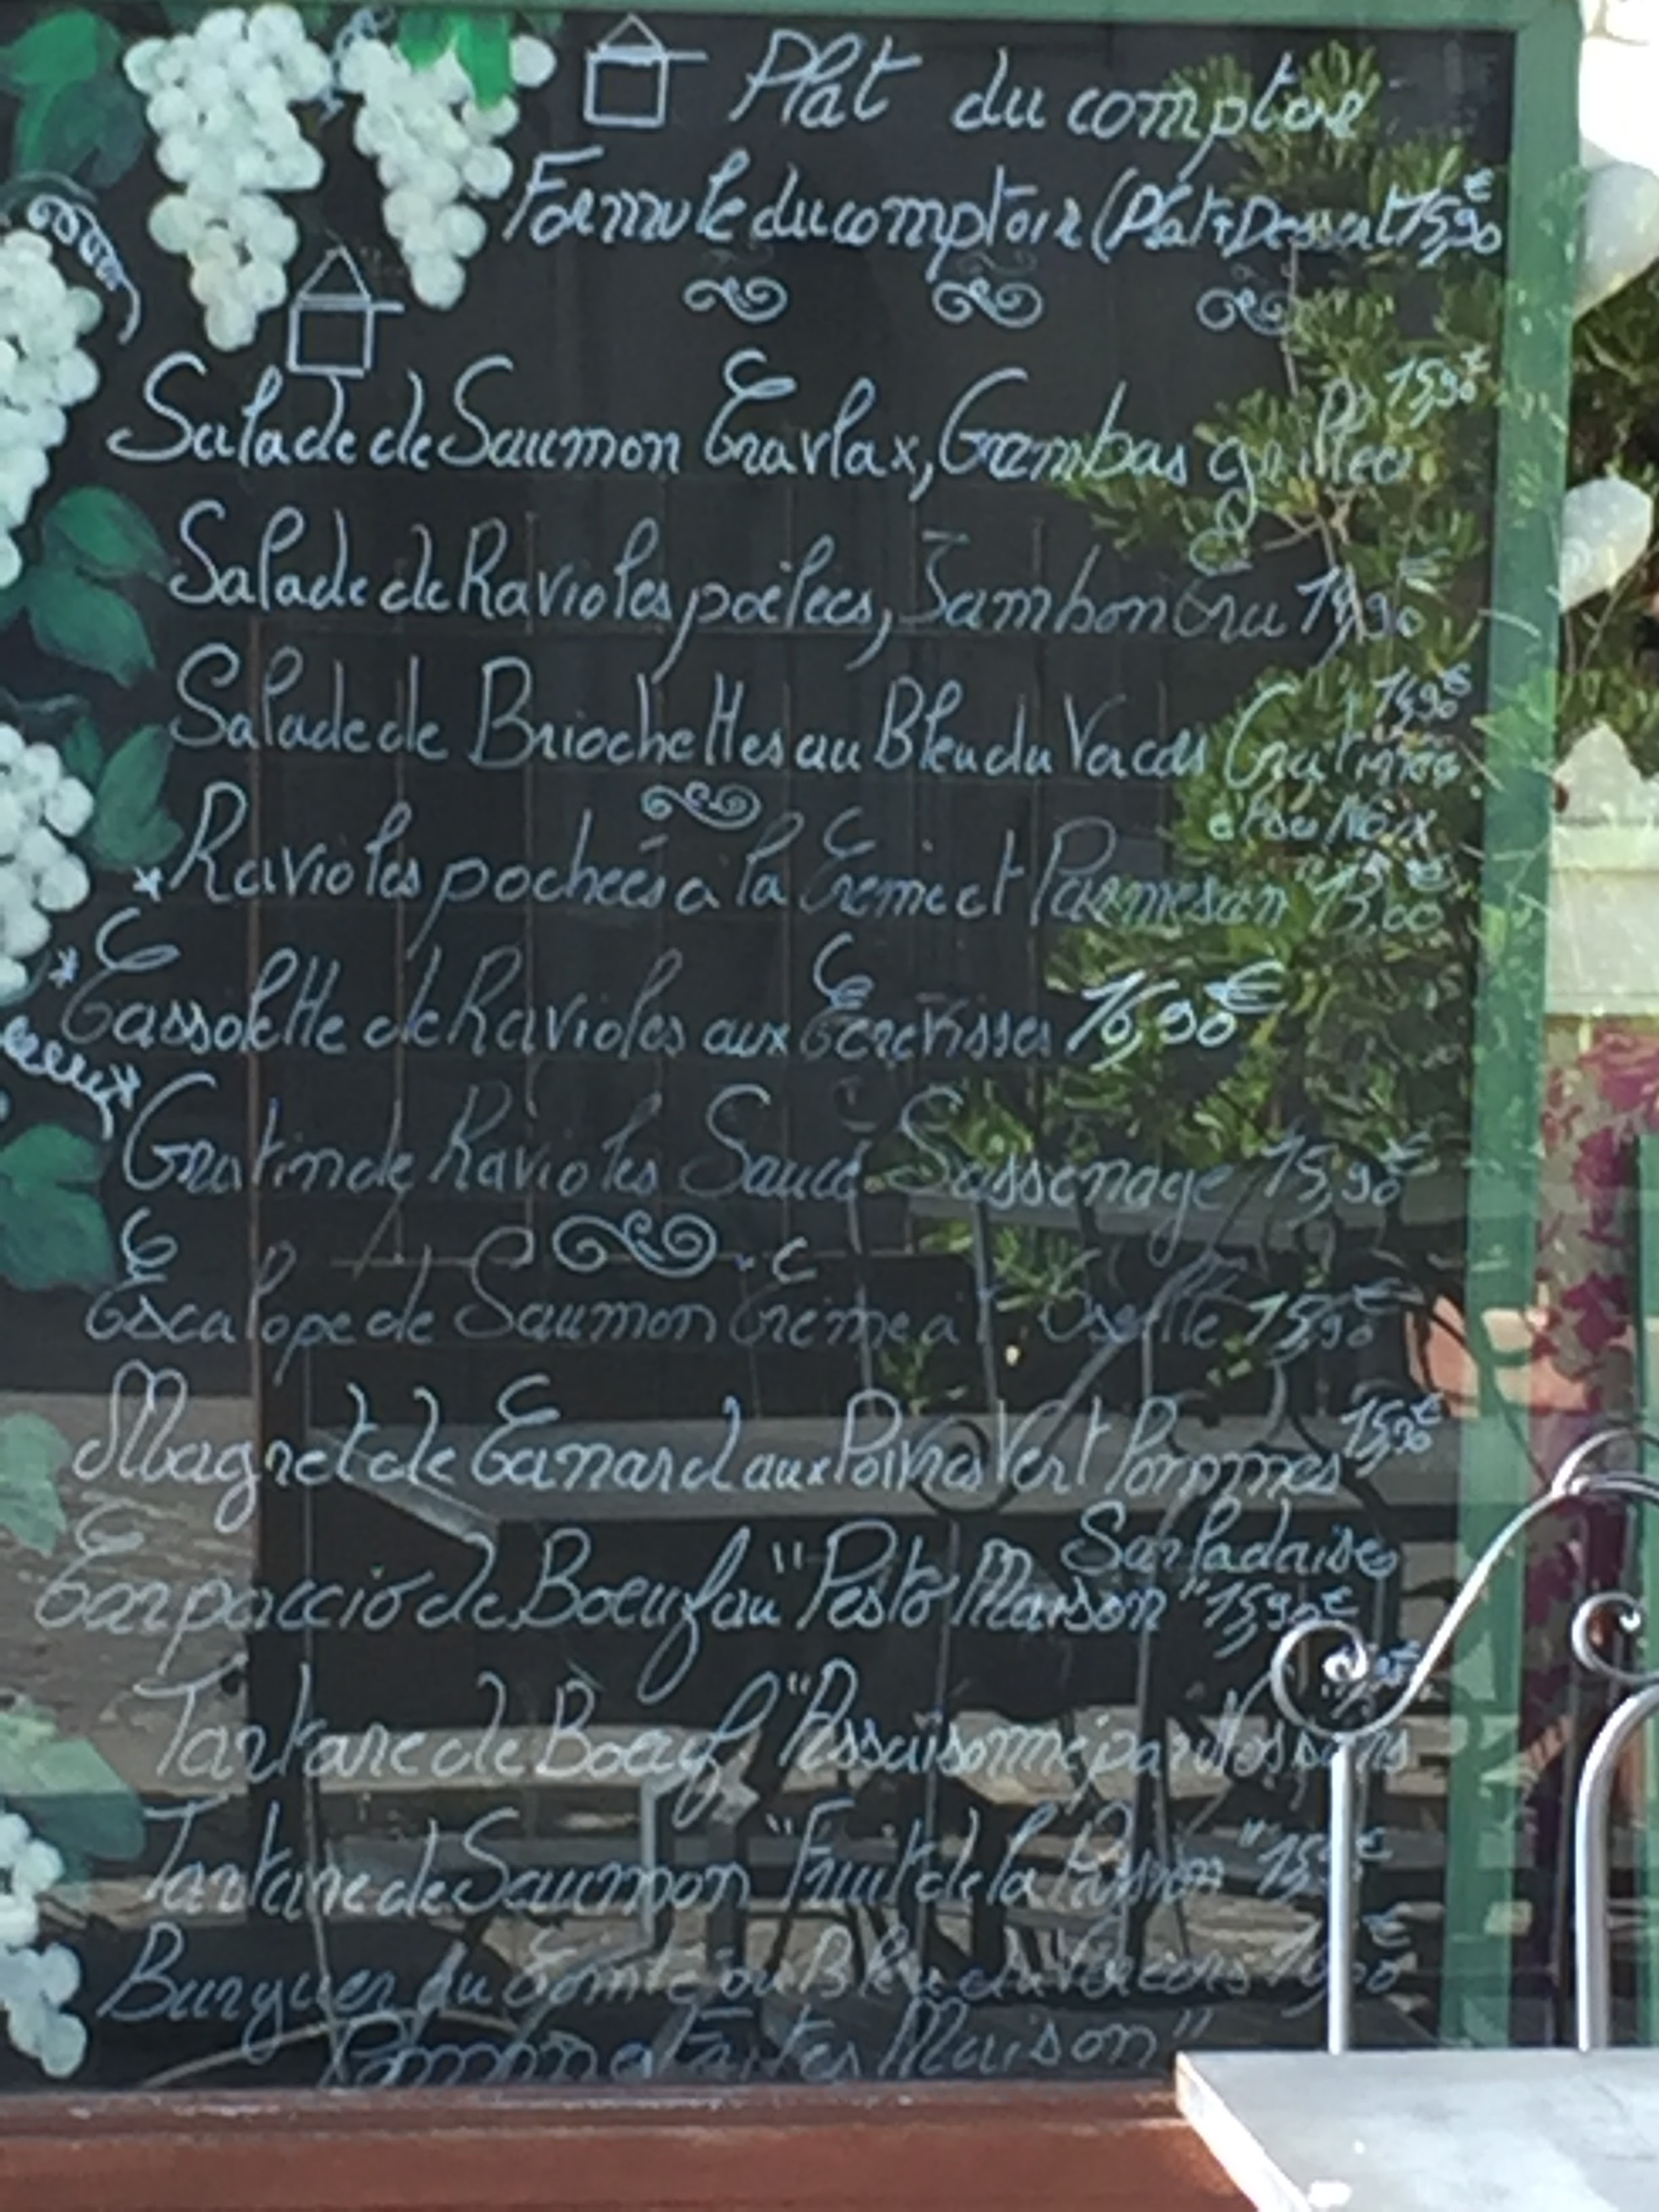 Plat du comptoir
Formule du comptoir (Plat + Dessert 15,90€
Salade de Saumon Gravlax, Gambas grillées 15,90€
Salade de Ravioles poêlées, Jambon Cru
Salade de Briochettes au Bleu du Vercors Gratinées
et aux Noix
* Ravioles pochées a la Crème et Parmesan
* Cassolette de Ravioles aux Ecrevisses 16,90€
* Gratin de Ravioles Sauce Sassenage 15,90€
Escalope de Saumon Crème a l'Oseille 15,90€
Magret de Canard aux Poivres Vert Pommes 15,90€
Sarladaises
Carpaccio de Boeuf au "Pesto Maison" 15,90€
Tartare de Boeuf "Assaisonné par Vos soins
Tartare de Saumon "Fruit de la Passion"
Burguer du Comté ou Bleu du Vercors
Pommes Faites Maison"